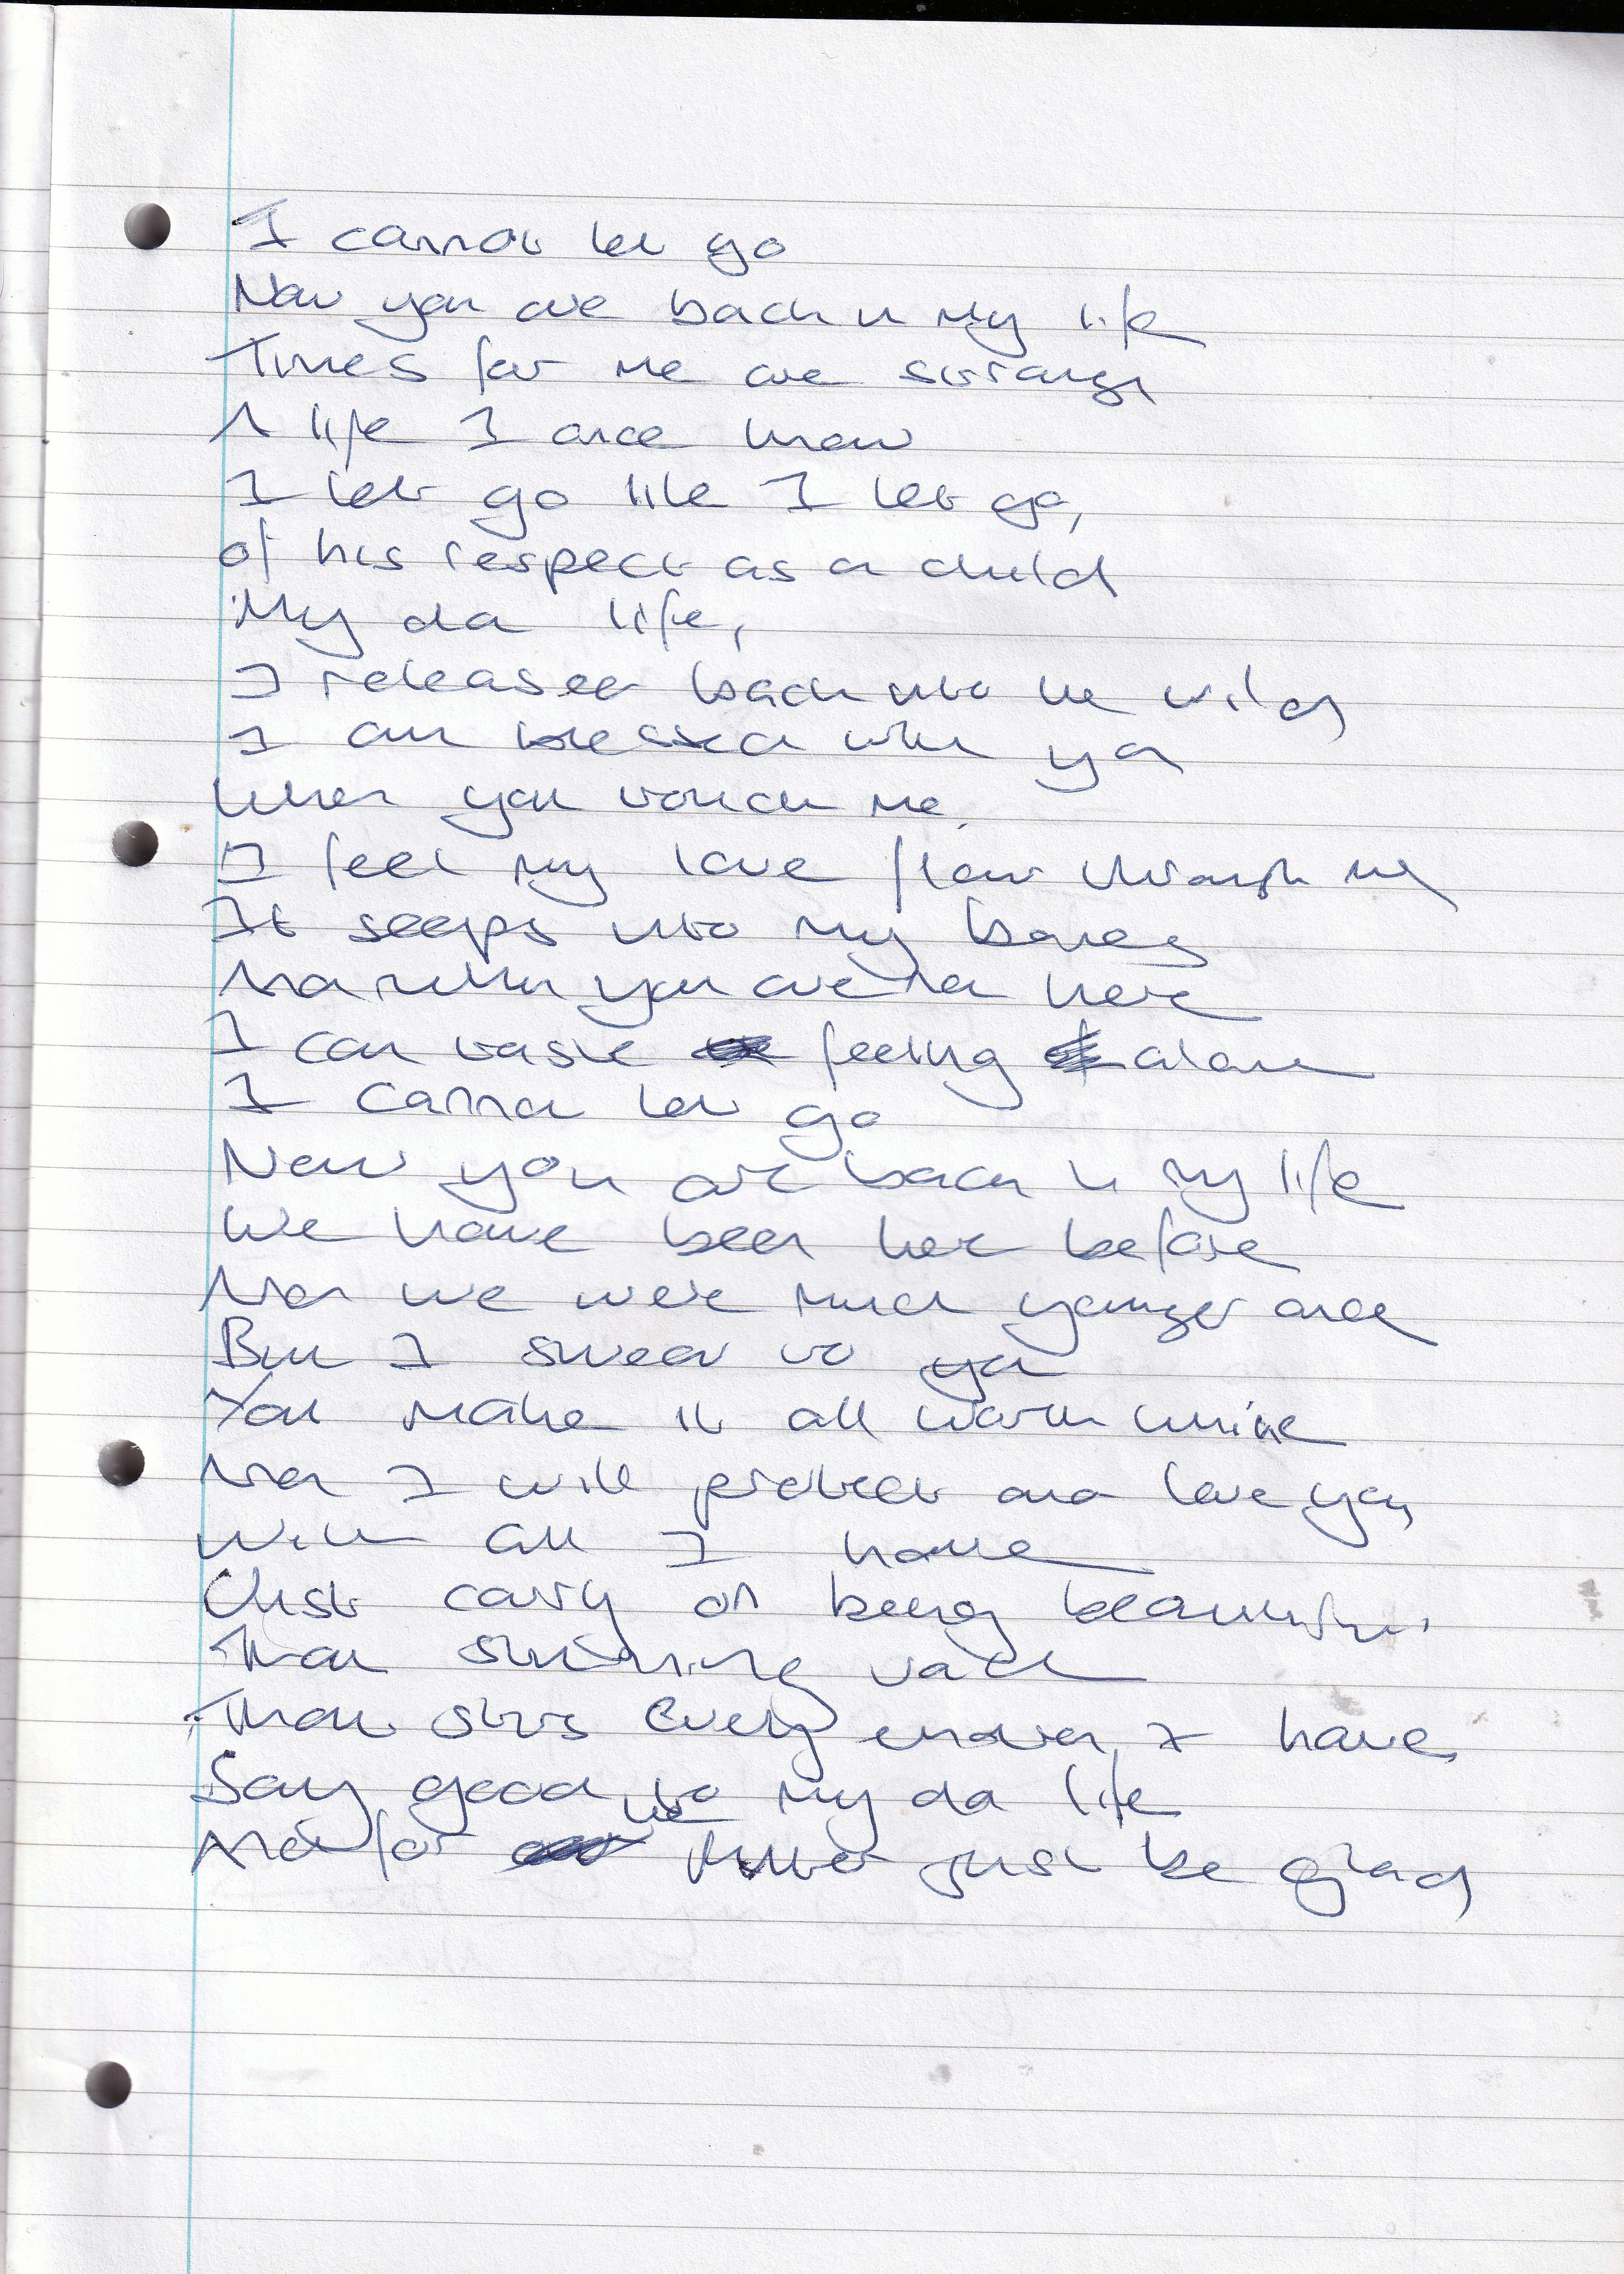 I cannot let go
Now you are back in my life
Times for me are strange
A life I once knew
I let go like I let go,
of his respect as a child
My old life,
I released back into the wild
I am blessed with you
When you touch me.
I feel my love flow through me
It seeps into my bones
And when you are not here
I can taste feeling alone
I cannot let go
Now you are back in my life
We have been here before
And we were much younger once
But I swear to you
You make it all worth while
And I will protect and love you
With all I have
Just carry on being beautiful
That stunning
That stirs every I have
Say good to my old life
And for the future just be glad